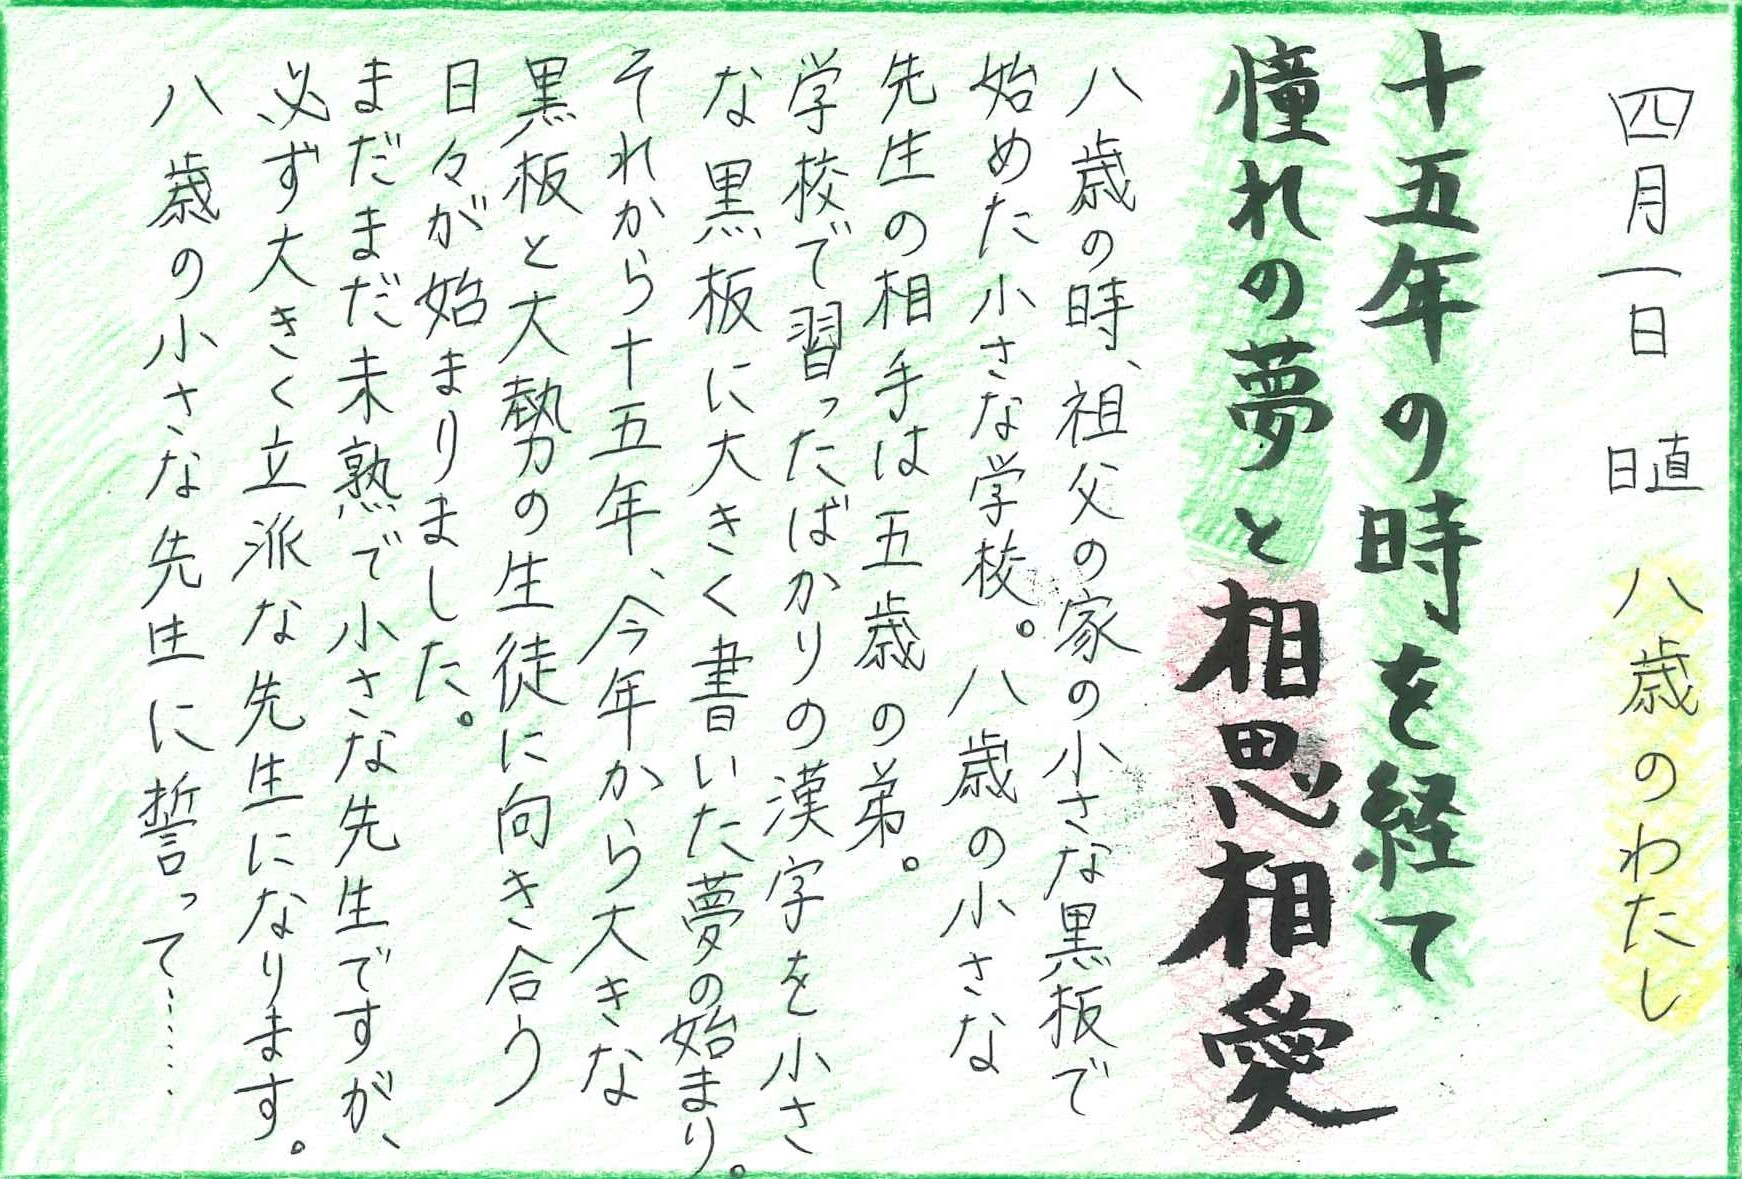 四月一日 日直 八歳のわたし
十五年の時を経て
憧れの夢と相思相愛
八歳の時、祖父の家の小さな黒板で
始めた小さな学校。八歳の小さな
先生の相手は五歳の弟。
学校で習ったばかりの漢字を小さ
な黒板に大きく書いた夢の始まり。
それから十五年、今年から大きな
黒板と大勢の生徒に向き合う
日々が始まりました。
まだまだ未熟で小さな先生ですが、
必ず大きく立派な先生になります。
八歳の小さな先生に誓って……